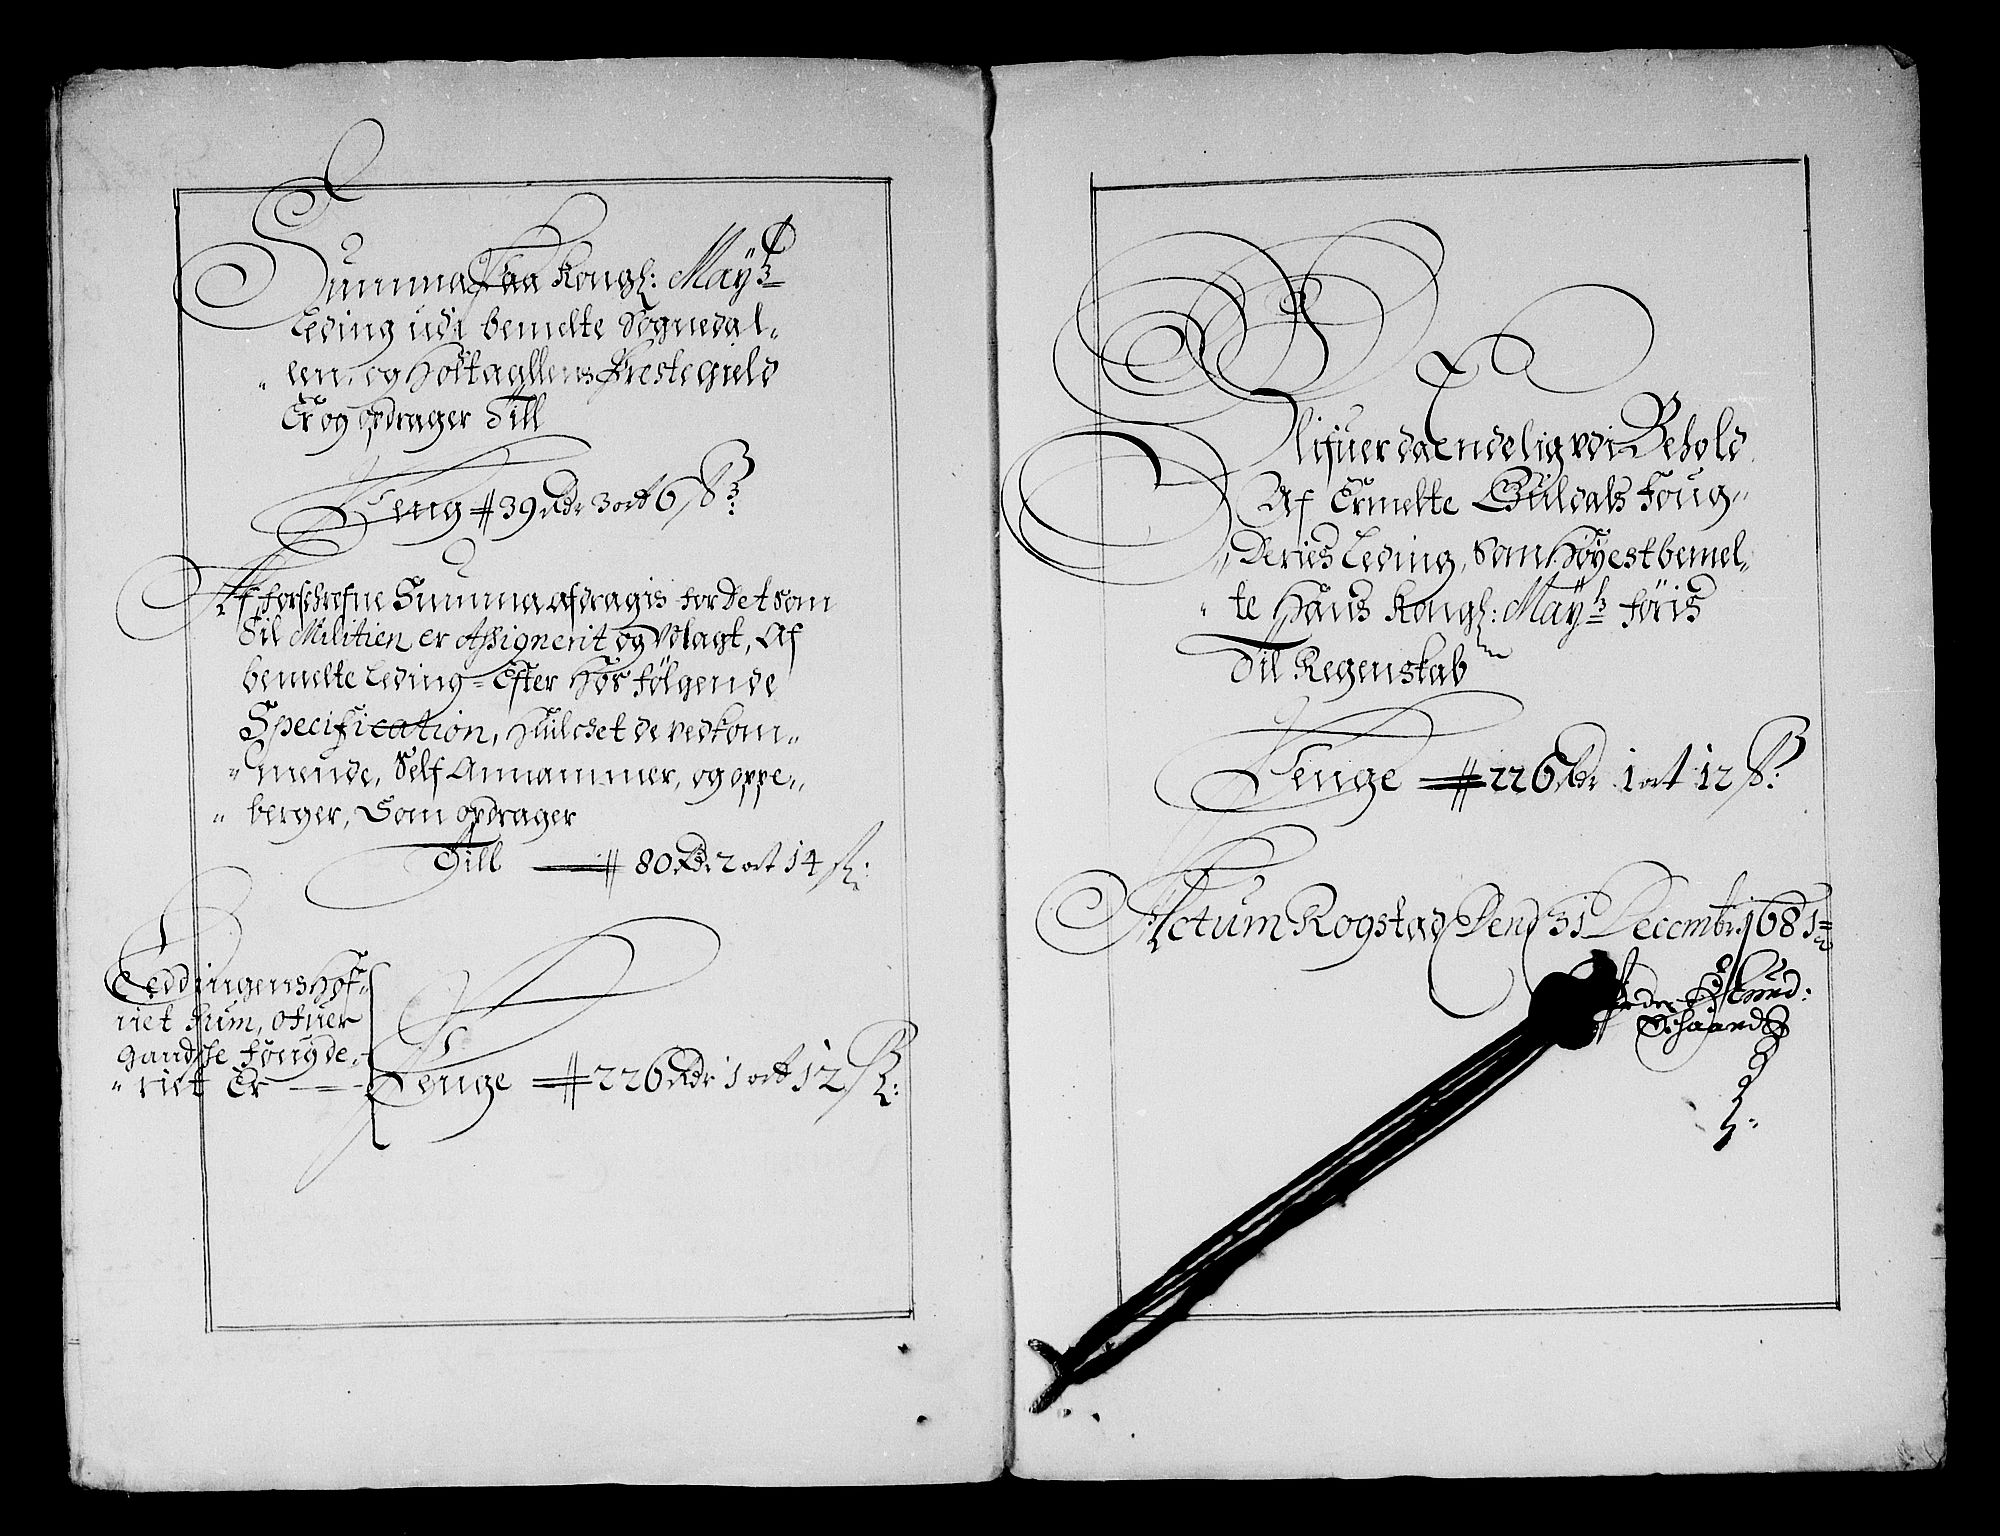 Summa Paa Kongl: Mayts
Leding udi bemelte Sognedal-
len, og Holtagllens Prestegield
Er og opdrager Till
Peng 39 Rdr 3 ort 6 ß:
Af forschrefne Summa afdragis for Det som
Til Militien er Assignerit og Udlagt, Af
bemelte Leding - Efter Hos følgende
Specification, Huilchet de vedkom-
mende, Self Annammer, og oppe-
berger, Som opdrager
Till 80 Rdr 2 ort 14 ß:
Leddingens Hof-
riet Sum, ofuer
gandsche fougde-
riet Er Penge 226 Rdr 1 ort 12 ß:
Blifuer da Endelig vdi Behold
Af Ermelte Guldals Foug-
deries Leding, Som Høyestbemel-
te Hans Kongl: Mayts føris
Til Regenskab
Penge 226 Rdr 1 ort 12 ß:
Actum Rogstad Dend 31 Decembr: 1681